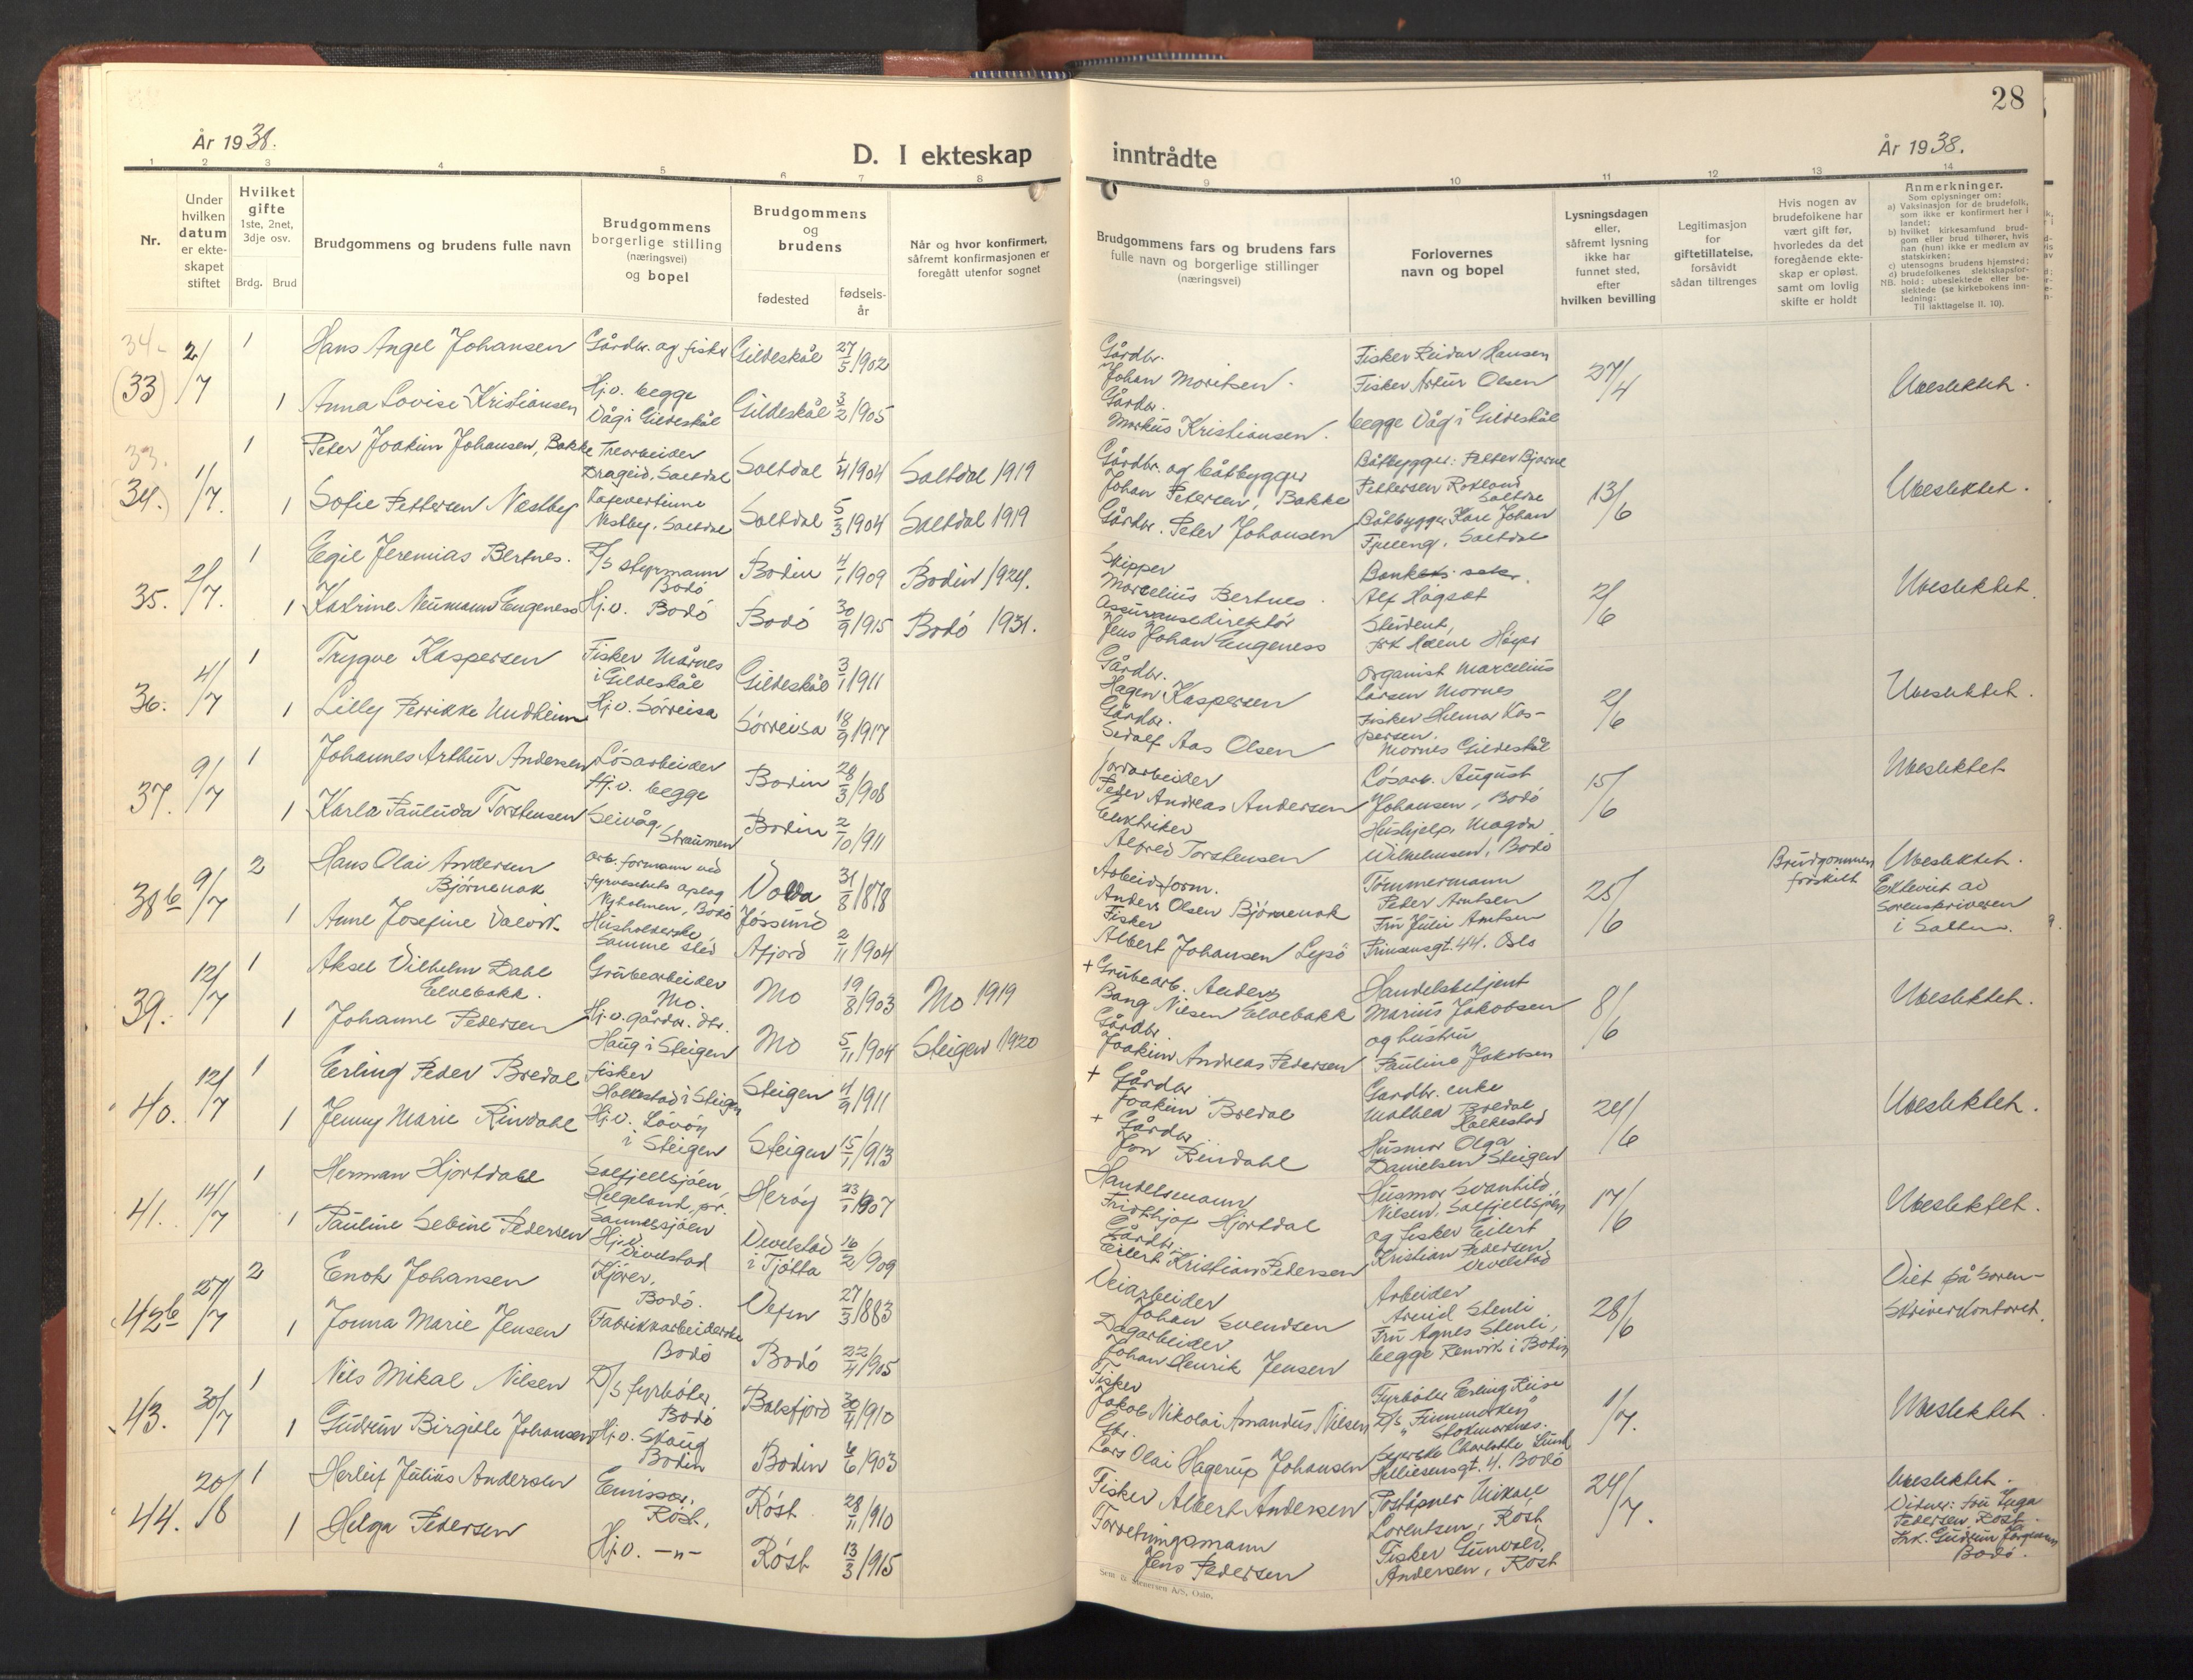 28
År 1938.
D. I ekteskap
inntrådte
År 1938.
1 2 3 4 5 6 7 8 9 10 11 12 13 14
Nr.
Under
hvilken
datum
er ekte-
skapet
stiftet
Hvilket
gifte
1ste, 2net,
3dje osv.
Brdg. Brud
Brudgommens og brudens fulle navn
Brudgommens
borgerlige stilling
(næringsvei)
og bopel
Brudgommens
og
brudens
fødested
fødsels-
år
Når og hvor konfirmert,
såfremt konfirmasjonen er
foregått utenfor sognet
Brudgommens fars og brudens fars
fulle navn og borgerlige stillinger
(næringsvei)
Forlovernes
navn og bopel
Lysningsdagen
eller,
såfremt lysning
ikke har
funnet sted,
efter
hvilken bevilling
Legitimasjon
for
giftetillatelse,
forsåvidt
sådan tiltrenges
Hvis nogen av
brudefolkene har
vært gift før,
hvorledes da det
foregående ekte-
skap er opløst,
samt om lovlig
skifte er holdt
Anmerkninger.
Som oplysninger om:
a) Vaksinasjon for de brudefolk,
som ikke er konfirmert her i
landet;
b) hvilket kirkesamfund brud-
gom eller brud tilhører, hvis
han (hun) ikke er medlem av
statskirken;
c) utensogns brudens hjemsted;
d) brudefolkenes slektskapsfor-
NB. hold: ubeslektede eller be-
slektede (se kirkebokens inn-
ledning:
Til iakttagelse II. 10).
34.
(33) 2/7 1 Hans Angel Johansen
Gårdbr. og fisker
Gildeskål 27/5 1902
1 Anna Lovise Kristiansen
Hj.v. begge
Våg i Gildeskål
Gildeskål 3/2 1905
Gårdbr.
Johan Moritsen.
Gårdbr.
Markus Kristiansen.
Fisker Reidar Hansen
Fisker Artur Olsen
begge Våg i Gildeskål
27/4
Ubeslektet.
33.
(34.) 1/7. 1 Peter Joakim Johansen, Bakke
Trearbeider
Drageid, Saltdal
Saltdal 1/4 1904 Saltdal 1919
1 Sofie Pettersen Nestby
Kafevertinne
Nestby, Saltdal
Saltdal 5/3 1904 Saltdal 1919
Gårdbr. og båtbygger
Johan Petersen, Bakke
Gårdbr. Peter Johansen
Båtbygger: Petter Bjarne
Pettersen Rokland
Saltdal
Båtbygger Kare Johan
Fjelleng, Saltdal
13/6
Ubeslektet.
35. 2/7. 1 Egil Jeremias Bertnes.
D/S styrmann
Bodø
Bodin 4/1 1909 Bodin 1924.
1 Katrine Neumann Engeness
Hj.v. Bodø
Bodø 30/9 1915 Bodø 1931.
Skipper
Marcelius Bertnes.
Assuransedirektør
Jens Johan Engeness
Bank sekr.
Alf Hågsæt
Student,
Frk Høyer
2/6
Ubeslektet.
36. 4/7 1 Trygve Kaspersen
Fisker Mårnes
i Gildeskål
Gildeskål 3/1 1911
1 Lilly Perrikke Undheim
Hj.v. Sørreisa
Sørreisa 18/9 1917
Gårdbr.
Hagen Kaspersen
Gårdbr.
Sedolf Aas Olsen
Organist Marcelius
Larsen Mornes
Fisker Hilmar Kas-
persen.
Mornes Gildeskål
2/6
Ubeslektet.
37. 9/7 1 Johannes Arthur Andersen
Løsarbeider
Hj.v. begge
Bodin 28/3 1908
1 Karla Pauluda Torstensen
Seivåg,
Straumen
Bodin 2/10 1911
Jordarbeider
Peder Andreas Andersen
Elektriker
Alfred Torstensen
Løsarb. August
Johansen, Bodø
Hushjelp, Magda
Wilhelmsen, Bodø
15/6
Ubeslektet
38b 9/7 2 Hans Olai Andersen
Bjørnenak
arb. formann ved
fyrvesenets oplag
Nyholmen, Bodø
31/8 1878
1 Anne Josefine Valvik.
Husholderske
Samme sted
Jøssund
Afjord 2/11 1904
Arbeid.form.
Anders Olsen Bjørnenak
Fisker
Albert Johansen Lysø
Tømmermann
Peder Arntsen
Fru Julie Arntsen
Prinsensgt. 44. Oslo
25/6
Brudgommen
fraskilt
Ubeslektet.
Ektevidd av
Sorenskriveren
i Salten.
39. 12/7 1 Aksel Vilhelm Dahl
Elvebakk.
Grubearbeider
Mo.
Mo 19/8 1903 Mo 1919
1 Johanne Pedersen
Hj.v. gårdbr. dtr.
Haug i Steigen
Mo 5/11 1904 Steigen 1920
+ Grubearb. Anders
Bang Nilsen Elvebakk
Gårdbr.
Joakim Andreas Pedersen
Handelsbetjent
Marius Jakobsen
og hustru
Pauline Jakobsen
8/6
Ubeslektet.
40. 12/7 1 Erling Peder Bredal
fisker
Holkestad i Steigen
Steigen 4/9 1911
1 Jenny Marie Rindahl
Hj.v. Løvøy
i Steigen
Steigen 15/1 1913
+ Gårdbr
Joakim Bredal
+ Gårdbr
Jon Rindahl
Gardbr. enke
Mathea Bredal
Holkestad
Husmor Olga
Danielsen Steigen
24/6
Ubeslektet.
41. 14/7 1 Herman Hjortdahl
Solfjellsjøen
Helgeland, pr.
Sannesjøen
Herøy 23/1 1907
1 Pauline Sebine Pedersen
Hj.v.
Vivelstad
Vevelstad
i Tjøtta 16/2 1909
Handelsmann
Fridthjof Hjortdal
Gårdbr.
Eilert Kristian Pedersen
Husmor Svanhild
Nilsen, Solfjellsjøen
og fisker Eilert
Kristian Pedersen,
Vevelstad
17/6
Ubeslektet.
42b 27/7 2 Enok Johansen
Kjører,
Bodø.
Vefsn 27/3 1883
1 Jonna Marie Jensen
Fabrikkarbeiderske
Bodø
Bodø 22/4 1905
Veiarbeider
Johan Svendsen
Dagarbeider
Johan Henrik Jensen
Arbeider
Arvid Stenli
Fru Agnes Stenli,
begge Rønvik i Bodin
28/6
Viet på Soren-
skriverkontoret.
43. 30/7 1 Nils Mikal Nilsen
D/S fyrbøter
Bodø
Balsfjord 30/4 1910
1 Gudrun Birgitte Johansen
Hj.v. Skaug
Bodin
Bodin 6/6 1903
Fisker
Jakob Nikolai Amandus Nilsen
Gbr.
Lars Olai Hagerup Johansen
Fyrbøter Erling Reise
D/S "Finnmarken"
Stokmarknes.
Syerske Charlotte Lund
Hilliesensgt. 4. Bodø
1/7.
Ubeslektet.
44. 20/8 1 Herleif Julius Andersen
Emissær,
Røst,
Røst 28/11 1910
1 Helga Pedersen
Hj.v. -"-
Røst 13/3 1915
Fisker Albert Andersen
Forretningsmann
Jens Pedersen
Poståpner Mikael
Lorentsen, Røst
Fisker Gunvald
Andersen, Røst
24/7.
Ubeslektet.
Vitner: Fru Inga
Pedersen, Røst.
Frk. Gudrun Jørgensen
Bodø.
Sem & Stenersen A/S, Oslo.